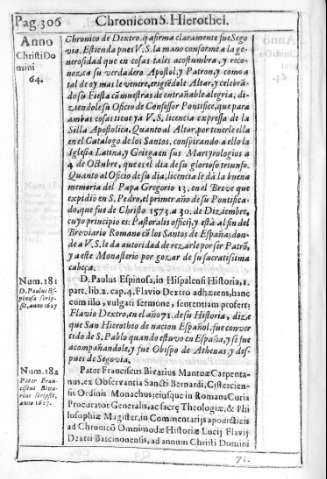 Pag.306 Chronicon S. Hierothei.
Anno
Christi Do
mini
64.
Chronico de Dextro, q̃ afirma claramente fue Sego
via. Estienda pues V.S. la mano conforme a la ge-
nerosidad que en cosas tales acostumbra, y reco-
nozca su verdadero Apostol, y Patron, y como a
tal de oy mas le venere, erigiẽdole Altar, y celebrã-
do su Fiesta cõ muestras de entrañable alegria, di-
ziendole su Oficio de Confessor Pontifice, que para
ambas cosas tiene ya V.S. licencia expressa de la
Silla Apostolica. Quanto al Altar, por tenerle ella
en el Catalogo de los Santos, conspirando a ello la
Iglesia Latina, y Griega en sus Martyrologios a
4. de Octubre, que es el dia de su glorioso triunfo.
Quanto al Oficio de su dia, licencia le dà la buena
memoria del Papa Gregorio 13. en el Breve que
expidiò en S. Pedro, el primer año de su Pontifica-
do, que fue de Christo 1573. a 30. de Diziembre,
cuyo principio es: Pastoralis officij, y està al fin del
Breviario Romano cõ los Santos de España; don-
de a V.S. le da autoridad de rezarle por ser Patrõ,
y a este Monasterio por gozar de su sacratisima
cabeça.
Num. 181
D. Paulus Es
pinosa scrip-
sit, anno 1627
D. Paulus Espinosa, in Hispalensi Historia, 1.
part. lib. 2. cap. 4. Flavio Dextro adhærens, hanc
cum illo, vulgari sermone, sententiam profert:
Flavio Dextro, en el año 71. de su Historia, dize
que San Hierotheo de nacion Español, fue conver
tido de S. Pablo quando estuvo en España, y se fue
acompañandole, y fue Obispo de Athenas, y des-
pues de Segovia.
Num. 182
Pater Fran-
ciscus Biva-
rius scripsit,
anno 1627.
Pater Franciscus Bivarius Mantuæ Carpenta-
nus, ex Observantia Sancti Bernardi, Cistercien-
sis Ordinis Monachus, eiusque in Romana Curia
Procurator Generalis, ac sacræ Theologiæ, & Phi
losophiæ Magister, in Commentarijs apodicticis
ad Chronicõ Omnimodæ Historiæ Lucij Flavij
Dextri Barcinonensis, ad annum Christi Domini
71.